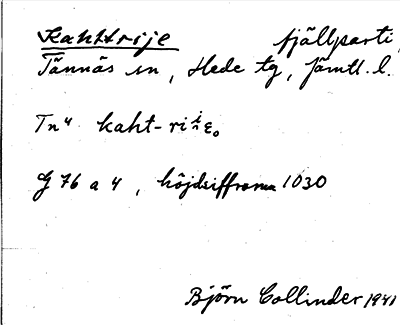 Kahttrije fjällparti,
Tännäs sn, Hede tg, Jämtl. l.
Tn⁴ kaht-ri
G 76 a 4, höjdsiffrorna 1030
Björn Collinder 1941